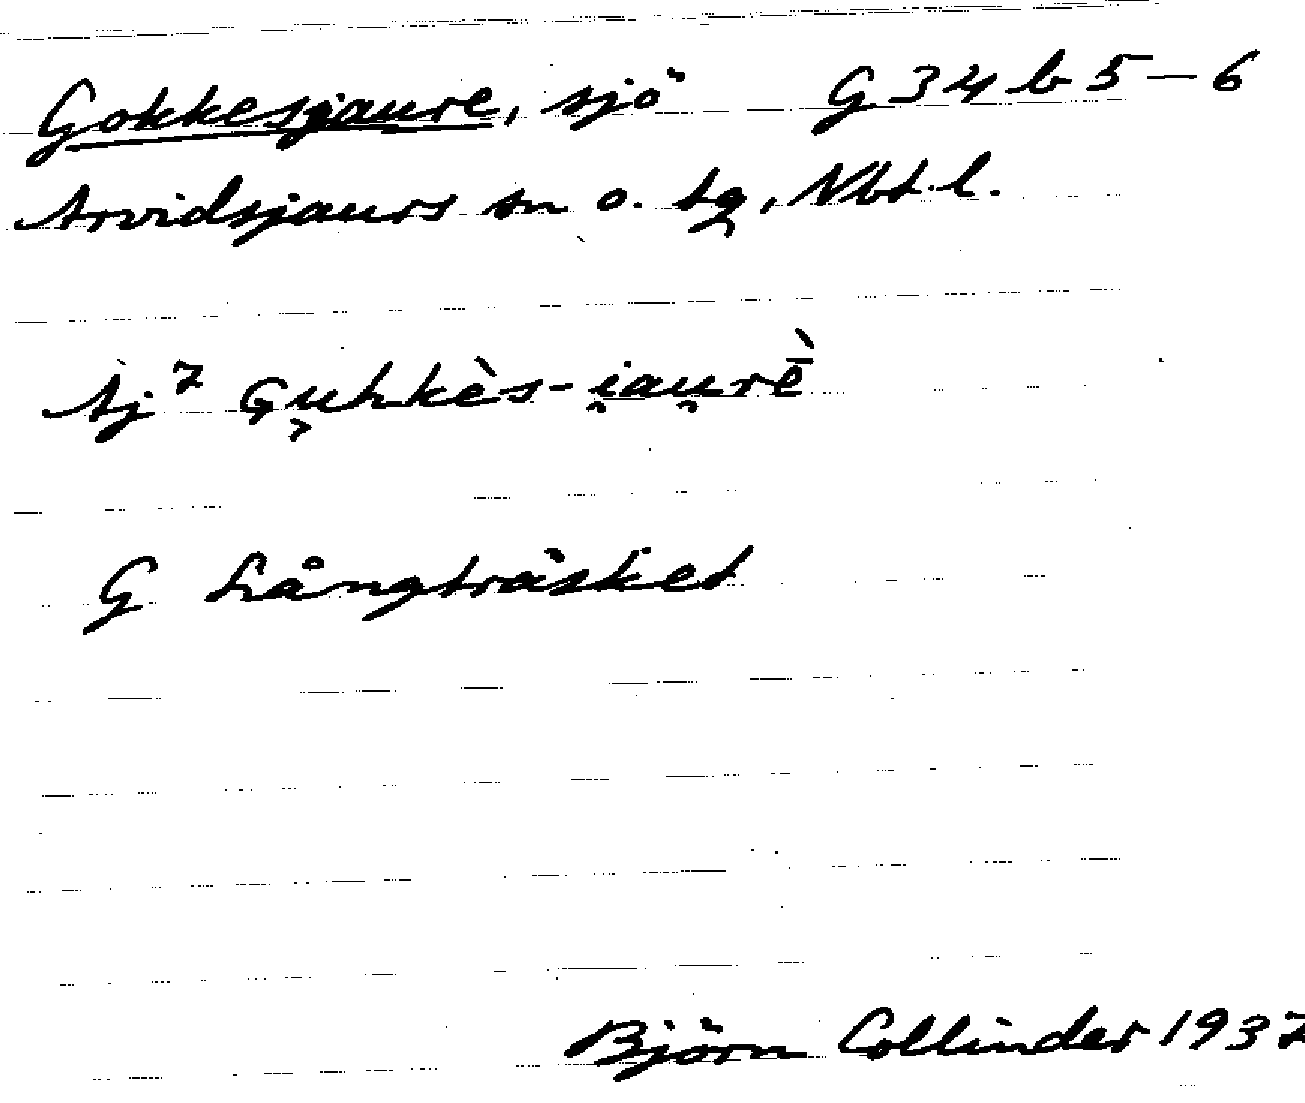 Gokkesjaure, sjö G 34 b 5–6
Arvidsjaurs sn o. tg, Nbt. l.
Aj⁷ Gu̜hkès-i̯au̯rḕ
G Långträsket
Björn Collinder 1937